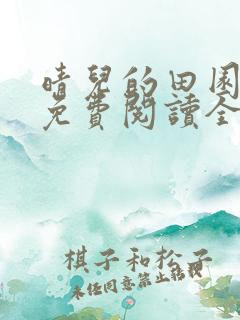 晴兒的田園
免費閱讀全
棋子和松子
未任同意禁止轉載